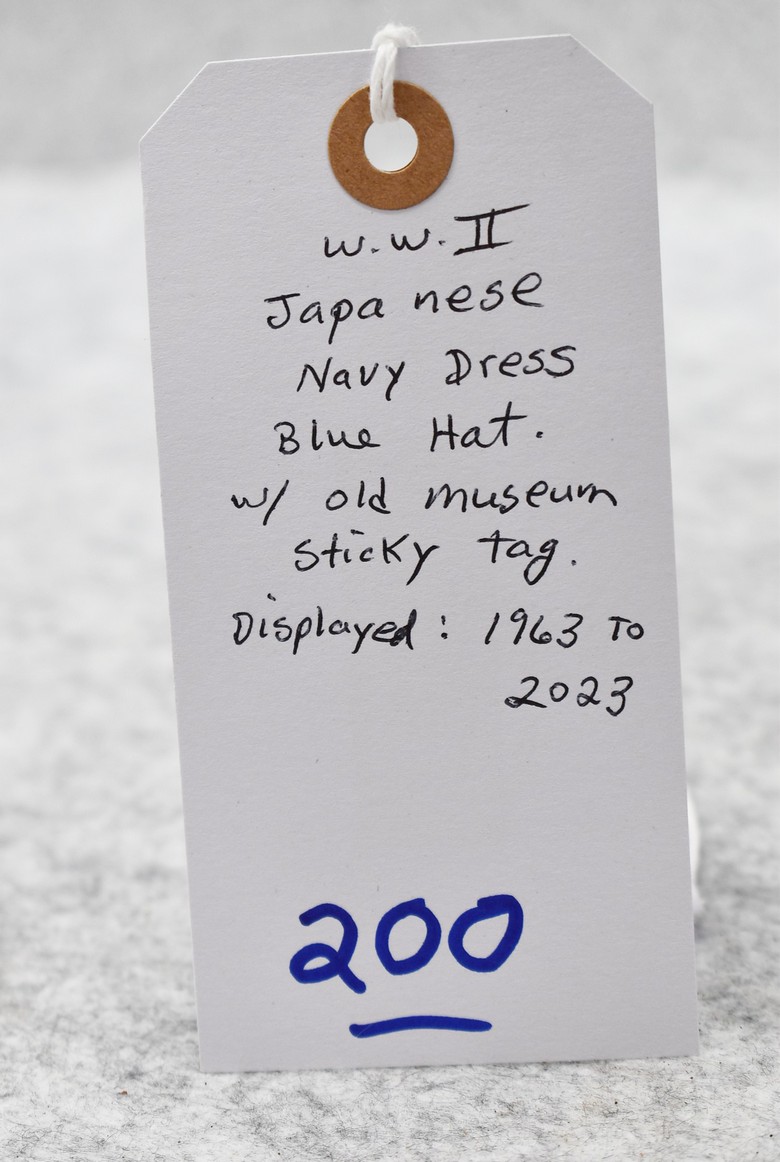 W.W.II
Japanese
Navy Dress
Blue Hat.
w/ old museum
sticky tag.
Displayed: 1963 To
2023
200